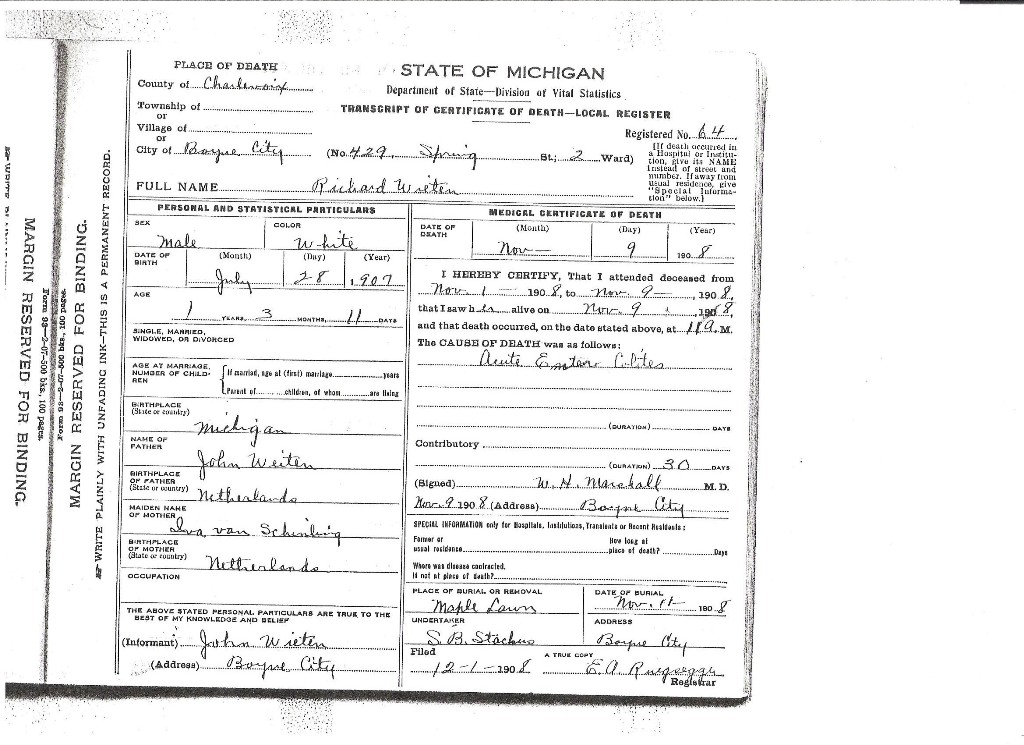 PLACE OF DEATH
County of Charlevoix
Township of
or
Village of
or
City of Boyne City (No. 429, Spring St.; 2 Ward)
STATE OF MICHIGAN
Department of State—Division of Vital Statistics
TRANSCRIPT OF CERTIFICATE OF DEATH—LOCAL REGISTER
Registered No. 64
[If death occurred in a Hospital or Institution, give its NAME instead of street and number. If away from usual residence, give "Special Information" below.]
FULL NAME Richard Wieten
PERSONAL AND STATISTICAL PARTICULARS
SEX
Male
COLOR
White
DATE OF BIRTH
(Month) (Day) (Year)
July 28 1907
AGE
1 YEARS, 3 MONTHS, 11 DAYS
SINGLE, MARRIED, WIDOWED, OR DIVORCED
AGE AT MARRIAGE, NUMBER OF CHILDREN
If married, age at (first) marriage years
Parent of children, of whom are living
BIRTHPLACE
(State or country)
Michigan
NAME OF FATHER
John Weiten
BIRTHPLACE OF FATHER
(State or country)
Netherlands
MAIDEN NAME OF MOTHER
van
BIRTHPLACE OF MOTHER
(State or country)
Netherlands
OCCUPATION
THE ABOVE STATED PERSONAL PARTICULARS ARE TRUE TO THE BEST OF MY KNOWLEDGE AND BELIEF
(Informant) John Wieten
(Address) Boyne City
MEDICAL CERTIFICATE OF DEATH
DATE OF DEATH
(Month) (Day) (Year)
Nov 9 1908
I HEREBY CERTIFY, That I attended deceased from
Nov. 1 1908, to Nov. 9 1908,
that I saw h alive on Nov. 9 1908,
and that death occurred, on the date stated above, at 11 a. M.
The CAUSE OF DEATH was as follows:
Acute
(DURATION) DAYS
Contributory
(DURATION) 30 DAYS
(Signed) W. H. Marshall M. D.
Nov. 9 1908 (Address) Boyne City
SPECIAL INFORMATION only for Hospitals, Institutions, Transients or Recent Residents:
Former or usual residence
How long at place of death? Days
Where was disease contracted,
if not at place of death?
PLACE OF BURIAL OR REMOVAL
Maple Lawn
DATE OF BURIAL
Nov. 11 1908
UNDERTAKER
S. B. Stackus
ADDRESS
Boyne City
Filed
12-1-1908
A TRUE COPY
E. A. Ruegsegger
Registrar
WRITE PLAINLY WITH UNFADING INK—THIS IS A PERMANENT RECORD.
MARGIN RESERVED FOR BINDING.
Form 98—2-07-500 bks., 100 pages.
MARGIN RESERVED FOR BINDING.
Form 98—2-07-500 bks., 100 pages.